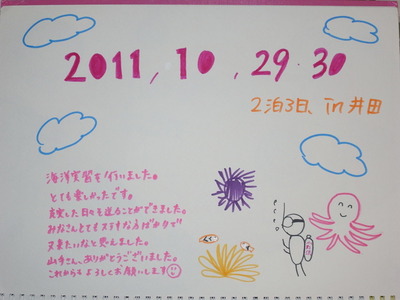 2011, 10, 29・30
2泊3日、in 井田
海洋実習を行いました。
とても楽しかったです。
充実した日々を送ることができました。
みなさんとてもステキな方ばかりで
又来たいなと思えました。
山本さん、ありがとうございました。
これからもよろしくお願いします